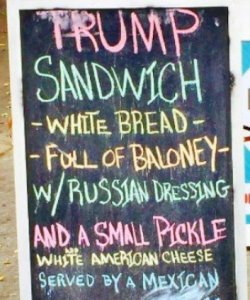 TRUMP
SANDWICH
- WHITE BREAD -
- FULL OF BALONEY -
W/ RUSSIAN DRESSING
AND A SMALL PICKLE
AND
WHITE AMERICAN CHEESE
SERVED BY A MEXICAN